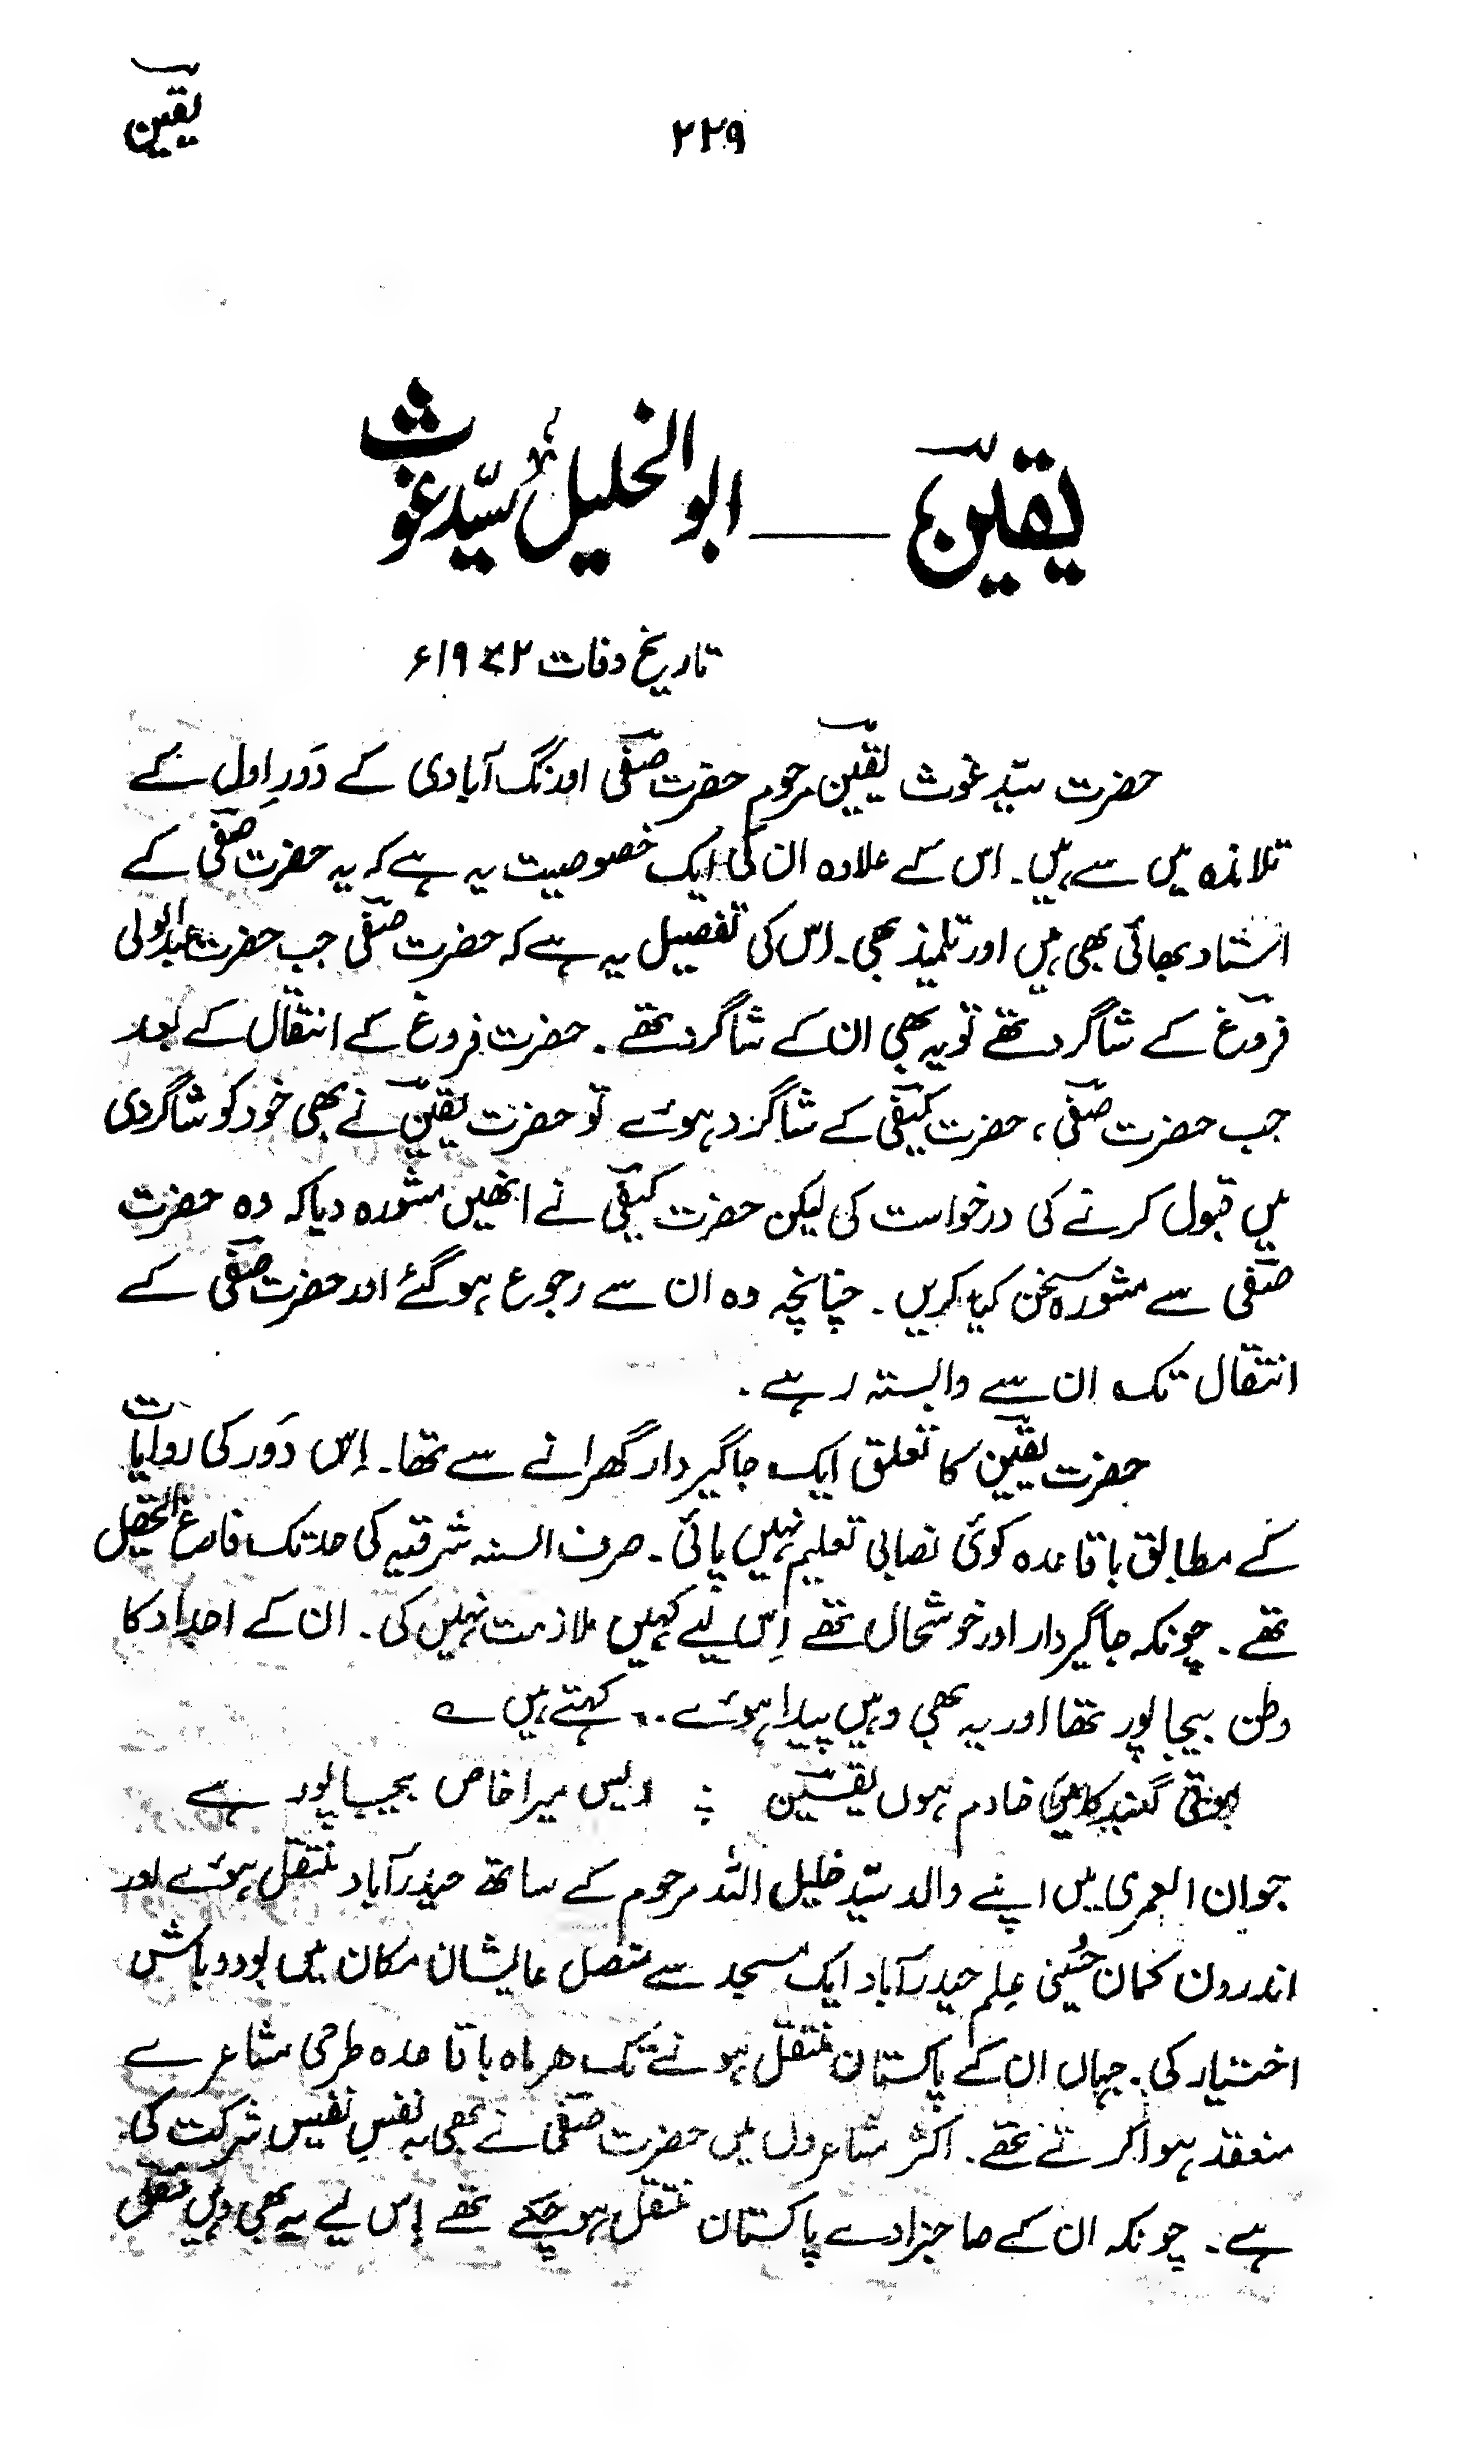 یقین
۲۲۹
یقین — ابوالخلیل سیّد غوث
تاریخ وفات ۱۹۷۲ء
حضرت سیّد غوث یقین مرحوم حضرت صفی اورنگ آبادی کے دَورِ اول کے
تلامذہ میں سے ہیں۔ اس کے علاوہ ان کی ایک خصوصیت یہ ہے کہ یہ حضرت صفی کے
استاد بھائی بھی ہیں اور تلمیذ بھی۔ اس کی تفصیل یہ ہے کہ حضرت صفی جب حضرت عبدالولی
فروغ کے شاگرد تھے تو یہ بھی ان کے شاگرد تھے۔ حضرت فروغ کے انتقال کے بعد
جب حضرت صفی، حضرت کیفی کے شاگرد ہوئے تو حضرت یقین نے بھی خود کو شاگردی
میں قبول کرنے کی درخواست کی لیکن حضرت کیفی نے انھیں مشورہ دیا کہ وہ حضرت
صفی سے مشورہ سخن کیا کریں۔ چنانچہ وہ ان سے رجوع ہو گئے اور حضرت صفی کے
انتقال تک ان سے وابستہ رہے۔
حضرت یقین کا تعلق ایک جاگیردار گھرانے سے تھا۔ اِس دَور کی روایات
کے مطابق باقاعدہ کوئی نصابی تعلیم نہیں پائی۔ صرف السنہ شرقیہ کی حد تک فارغ التحصیل
تھے۔ چونکہ جاگیردار اور خوشحال تھے اِس لیے کہیں ملازمت نہیں کی۔ ان کے اجداد کا
وطن بیجاپور تھا اور یہ بھی وہیں پیدا ہوئے۔ کہتے ہیں ؎
گنبد کا میں خادم ہوں یقین ؛ دیس میرا خاص بیجاپور ہے
جوان العمری میں اپنے والد سیّد خلیل اللہ مرحوم کے ساتھ حیدرآباد منتقل ہوئے اور
اندرون کمان حُسینی عَلم حیدرآباد ایک مسجد سے متصل عالیشان مکان میں بود و باش
اختیار کی۔ جہاں ان کے پاکستان منتقل ہونے تک ہر ماہ باقاعدہ طرحی مشاعرے
منعقد ہوا کرتے تھے۔ اکثر مشاعروں میں حضرت صفی نے بھی بہ نفسِ نفیس شرکت کی
ہے۔ چونکہ ان کے صاحبزادے پاکستان منتقل ہو چکے تھے اِس لیے یہ بھی وہیں منتقل